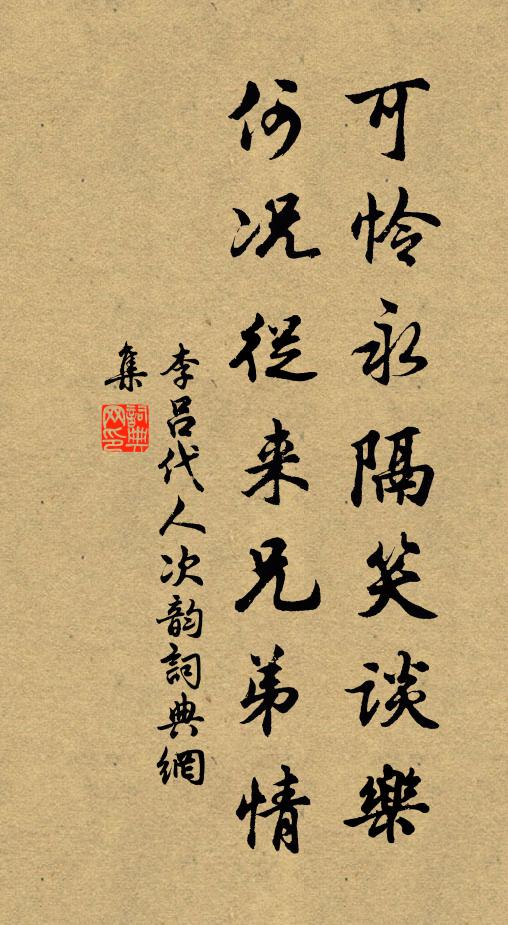 可怜永隔笑谈樂
何况從来兄弟情
李吕代人次韵詞典網
集
詞典网印